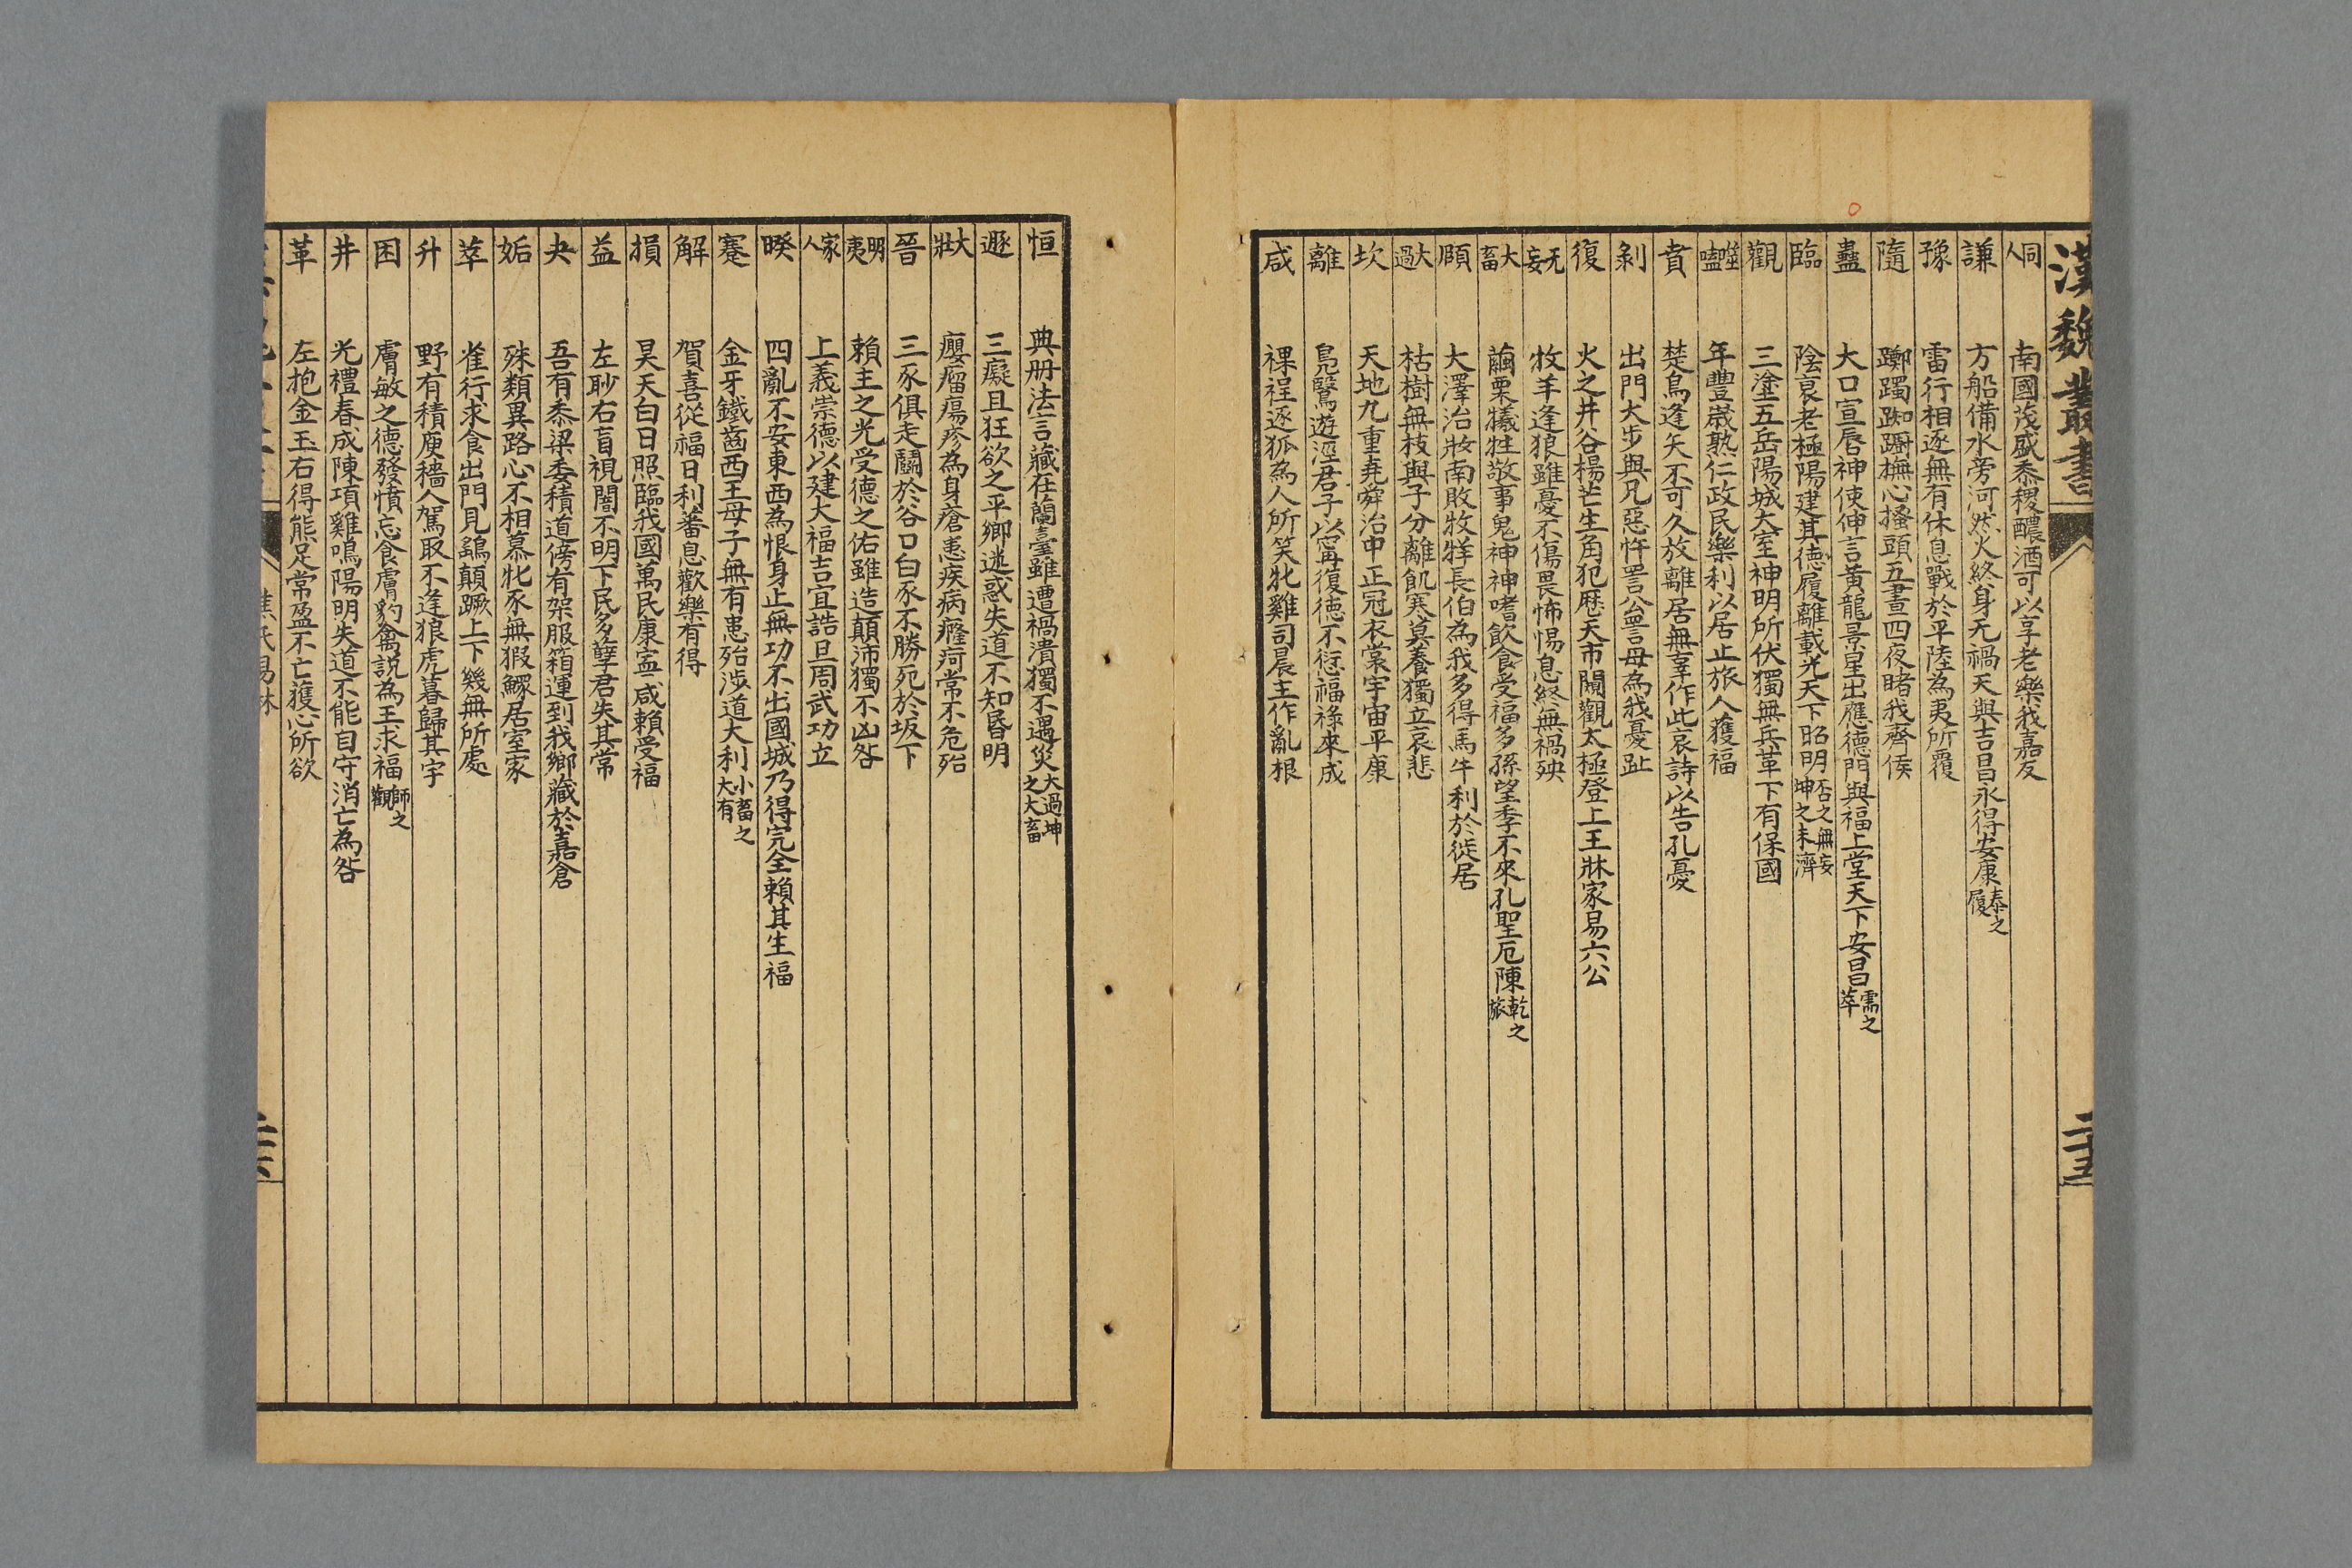 漢魏叢書
二十五
同人 南國茂盛黍稷醲酒可以享老樂我嘉友
謙 方船備水旁河然火終身无禍天與吉昌永得安康泰之履
豫 雷行相逐無有休息戰於平陸為夷所覆
隨 躑躅踟躕撫心搔頭五晝四夜睹我齊侯
蠱 大口宣唇神使伸言黃龍景星出應德門與福上堂天下安昌需之萃
臨 陰衰老極陽建其德履離載光天下昭明否之無妄坤之未濟
觀 三塗五岳陽城大室神明所伏獨無兵革下有保國
噬嗑 年豐歲熟仁政民樂利以居止旅人獲福
賁 楚鳥逢矢不可久放離居無羣作此哀詩以告孔憂
剝 出門大步與兄惡忤詈公詈母為我憂趾
復 火之井谷楊芒生角犯歷天市闚觀太極登上王牀家易六公
无妄 牧羊逢狼雖憂不傷畏怖惕息終無禍殃
大畜 繭栗犧牲敬事鬼神神嗜飲食受福多孫望季不來孔聖厄陳乾之旅
頤 大澤治妝南敗牧牂長伯為我多得馬牛利於徙居
大過 枯樹無枝與子分離飢寒莫養獨立哀悲
坎 天地九重堯舜治中正冠衣裳宇宙平康
離 鳧鷖遊涇君子以寧復德不愆福祿來成
咸 裸裎逐狐為人所笑牝雞司晨主作亂根
恒 典冊法言藏在蘭臺雖遭禍潰獨不遇災大過坤之大畜
遯 三癡且狂欲之平鄉迷惑失道不知昏明
大壯 癭瘤瘍疹為身瘡患疾病癃疴常不危殆
晉 三豕俱走鬭於谷口白豕不勝死於坂下
明夷 賴主之光受德之佑雖造顛沛獨不凶咎
家人 上義崇德以建大福吉宜誥旦周武功立
睽 四亂不安東西為恨身止無功不出國城乃得完全賴其生福
蹇 金牙鐵齒西王母子無有患殆涉道大利小畜之大有
解 賀喜從福日利蕃息歡樂有得
損 昊天白日照臨我國萬民康寧咸賴受福
益 左眇右盲視闇不明下民多孽君失其常
夬 吾有黍梁委積道傍有架服箱運到我鄉藏於嘉倉
姤 殊類異路心不相慕牝豕無猳鰥居室家
萃 雀行求食出門見鷂顛蹶上下幾無所處
升 野有積庾穡人駕取不逢狼虎暮歸其宇
困 膚敏之德發憤忘食虜豹禽說為王求福師之觀
井 光禮春成陳項雞鳴陽明失道不能自守消亡為咎
革 左抱金玉右得熊足常盈不亡獲心所欲
焦氏易林